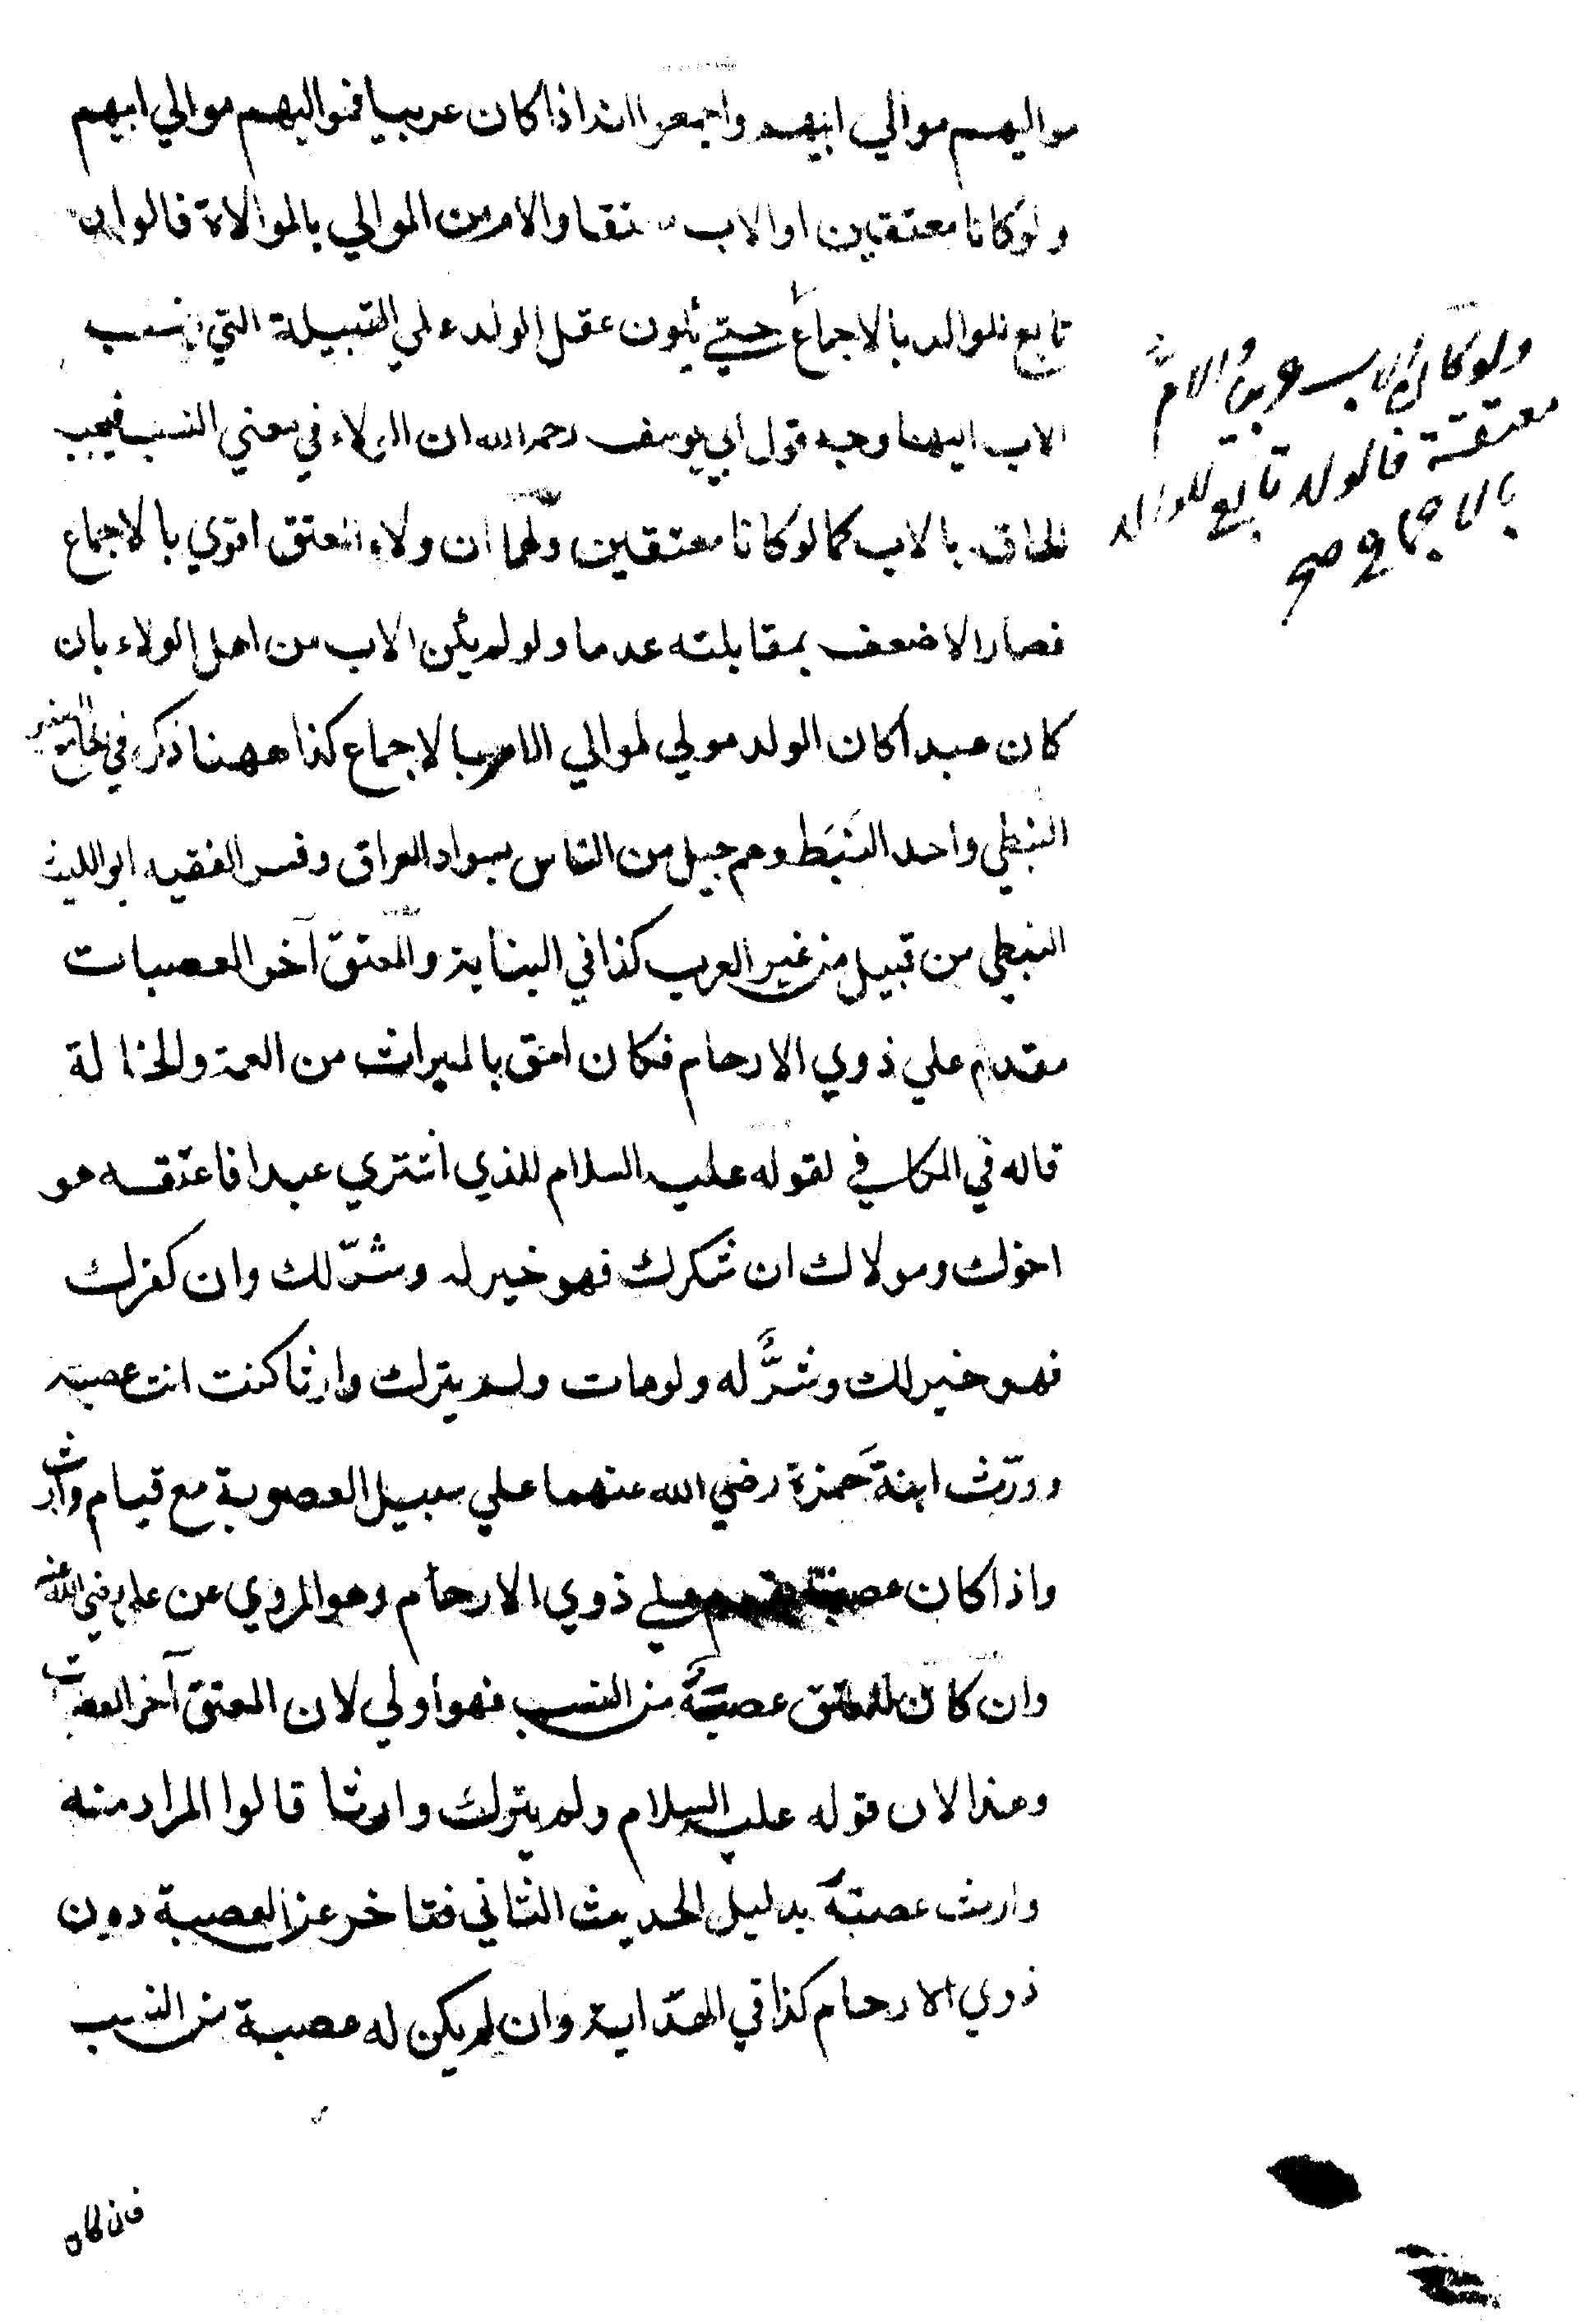 مواليهم موالي ابيهم واجمعوا انه اذا كان عربيا فمواليهم موالي ابيهم
ولو كانا معتقين او الاب معتقا والام من الموالي بالموالاة فالولد
تابع للوالد بالاجماع حتي يكون عقل الولد علي القبيلة التي ينسب
الاب اليها وجه قول ابي يوسف رحمه الله ان الولاء في معني النسب فيجب
الحاقه بالاب كما لو كانا معتقين ولهما ان ولاء المعتق اقوي بالاجماع
فصار الاضعف بمقابلته عدما ولو لم يكن الاب من اهل الولاء بان
كان عبدا كان الولد مولي لموالي الام بالاجماع كذا ههنا ذكره في الجامع الصغير
النبطي واحد النَبَط وهم جيل من الناس بسواد العراق وفسر الفقيه ابو الليث
النبطي من قبيل من غير العرب كذا في البناية والمعتق آخر العصبات
مقدم علي ذوي الارحام فكان احق بالميراث من العمة والخالة
قاله في الكافي لقوله عليه السلام للذي اشتري عبدا فاعتقه هو
اخوك ومولاك ان شكرك فهو خير له وشرّ لك وان كفرك
فهو خير لك وشرٌّ له ولو مات ولم يترك وارثا كنت انت عصبته
وورّث ابنةَ حَمزة رضي الله عنهما علي سبيل العصوبة مع قيام وارث
واذا كان عصبة تقدم علي ذوي الارحام وهو المروي عن علي رضي الله عنه
وان كان للمعتق عصبةٌ من النسب فهو أولي لان المعتق آخر العصبات
وهذا لان قوله عليه السلام ولم يترك وارثا قالوا المراد منه
وارث عصبة بدليل الحديث الثاني فتاخر عن العصبة دون
ذوي الارحام كذا في الهداية وان لم يكن له عصبة من النسب
فان كان
ولو كان الاب عربيا والام
معتقة فالولد تابع للوالد
بالاجماع صح